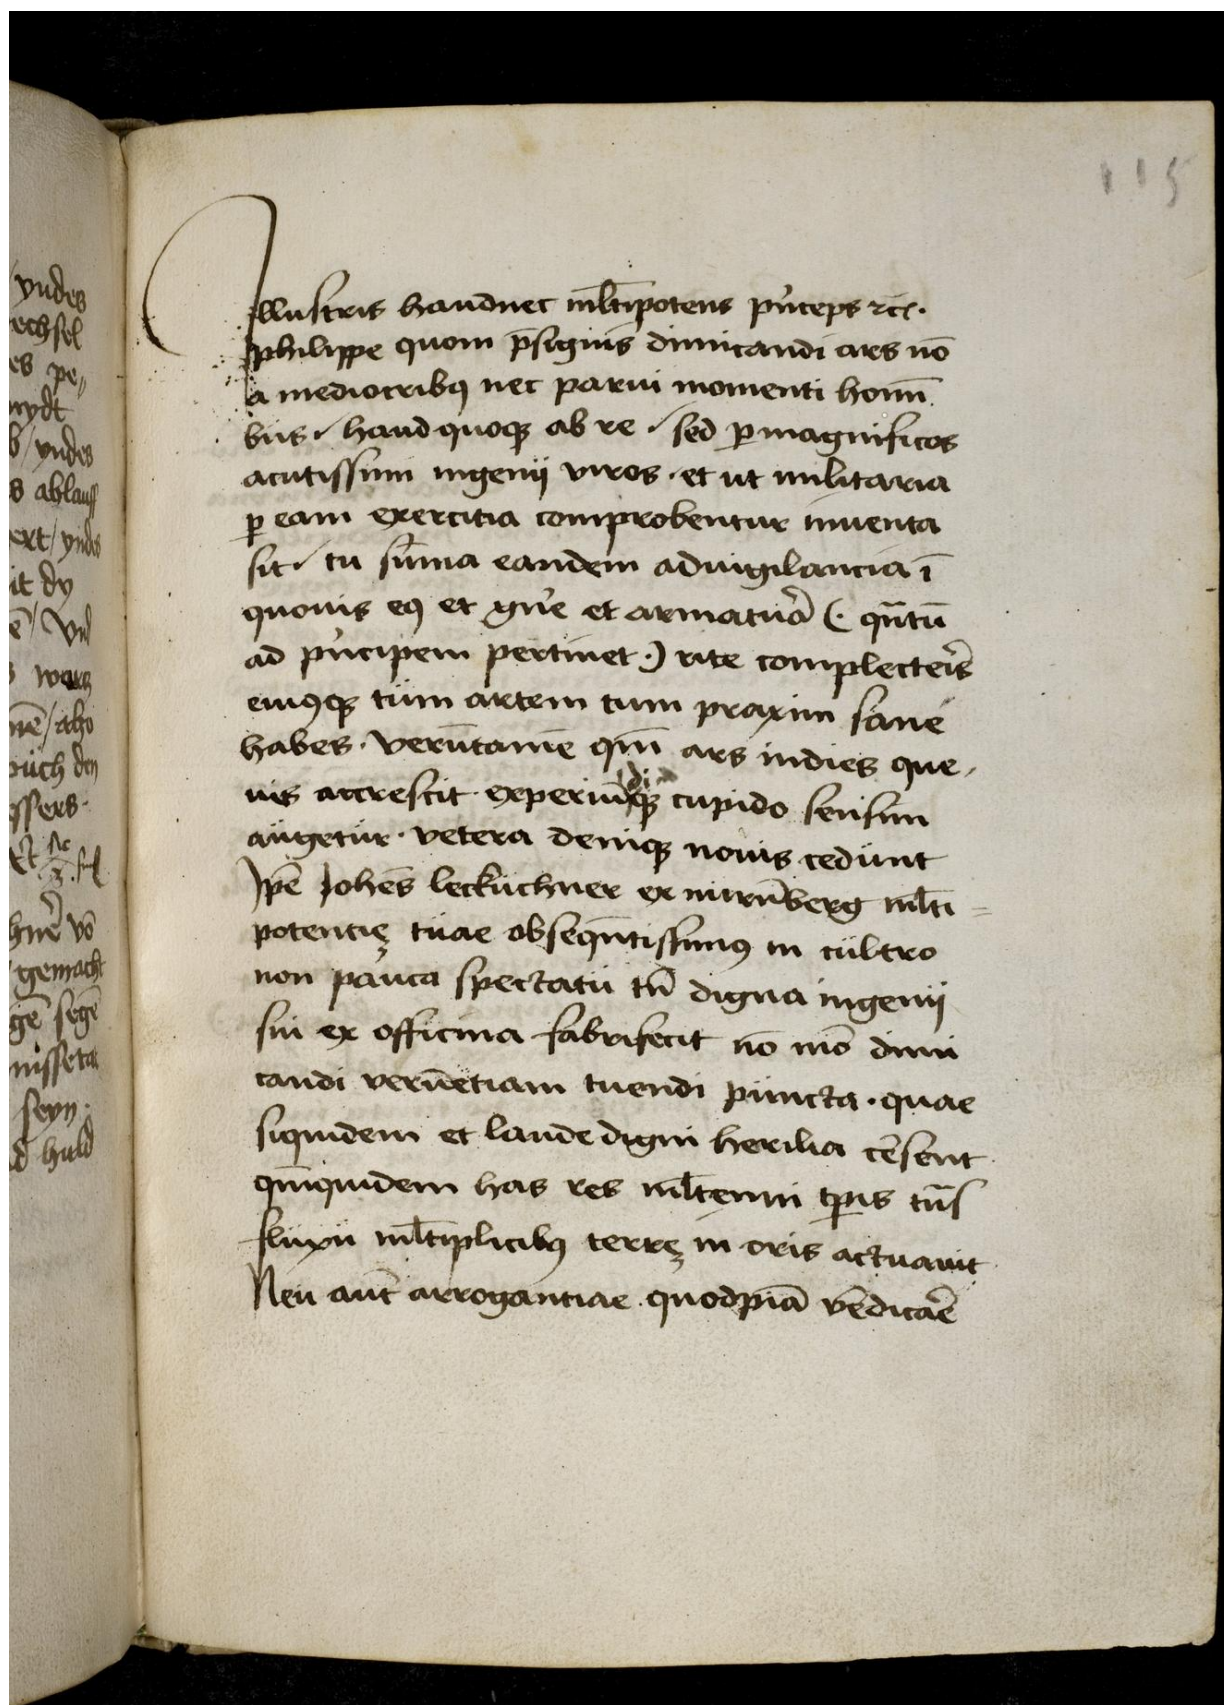 115
Illustris haudnec ml̄tipotens pn̉ceps ⁊c̄.
philippe quom p̄signis dimicandi ars nō
a mediocribꝰ nec parui momenti homī
bus / haud quoqꝫ ab re / sed ꝑ magnificos
acutissimi ingenij viros · et ut militaria
ꝑ eam exercitia comprobentur inuenta
sit / tu sūma eandem aduigilancia ī
quouis eqͥ et gn̉e et armatur̉a (· qn̄tū
ad pn̉cipem pertinet ·) rite complecter̉s
eiusqꝫ tum artem tum praxim sane
habes · verūtamē qm̄ ars indies que,
uis accrescit · experiūdiqꝫ cupido sensim
augetur · vetera deniqꝫ nouis cedunt
Ip̄e Joh̄es leckuchner ex nurn̄berg ml̄ti =
potencię tuae obseqn̄tissimꝰ in cultro
non pauca spectatu tn̄ digna ingenij
sui ex officina fabrifecit nō mō dimi
candi verūetiam tuendi puncta · quae
siquidem et laude digni herilia cēsent
qm̄quidem has res ml̄temi tꝑis tn̄s
fluxu ml̄tiplicibꝰ terrę in oris actuauit
Neu aut̄ arrogantiae quodpiā vēdicar̄e
yndes
echsel
es pe„
nydt
/ yndes
s ablauff
ert / yndes
it dy
/ Vnd
nē / also
ouch den
ssers ·
vō
gemacht
gē segē
seyn ·
d huld